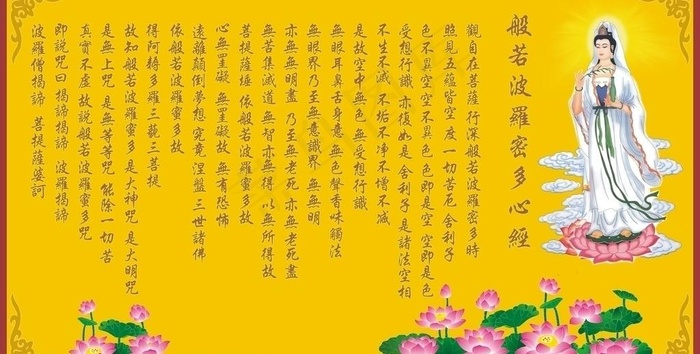 般若波羅密多心經
觀自在菩薩 行深般若波羅密多時
照見五蘊皆空 度一切苦厄 舍利子
色不異空 空不異色 色即是空 空即是色
受想行識 亦復如是 舍利子 是諸法空相
不生不滅 不垢不凈 不增不減
是故空中無色 無受想行識
無眼耳鼻舌身意 無色聲香味觸法
無眼界 乃至無意識界 無無明
亦無無明盡 乃至無老死 亦無老死盡
無苦集滅道 無智亦無得 以無所得故
菩提薩埵 依般若波羅密多故
心無罣礙 無罣礙故 無有恐怖
遠離顛倒夢想 究竟涅盤 三世諸佛
依般若波羅密多故
得阿耨多羅三藐三菩提
故知般若波羅密多 是大神咒 是大明咒
是無上咒 是無等等咒 能除一切苦
真實不虛 故說般若波羅密多咒
即說咒曰 揭諦揭諦 波羅揭諦
波羅僧揭諦 菩提薩婆訶